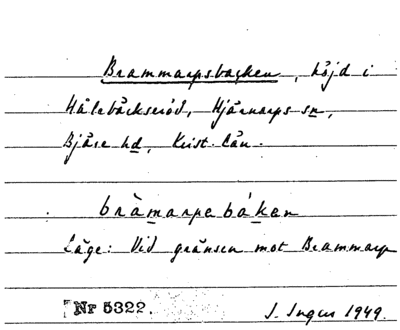 Brammarpsbacken, höjd i
Hålebäckseröd, Hjärnarps sn,
Bjäre hd, Krist. län.
bràmarpsbákan
Läge: Vid gränsen mot Brammarp
Nr 5322.
J. Ingers 1949.